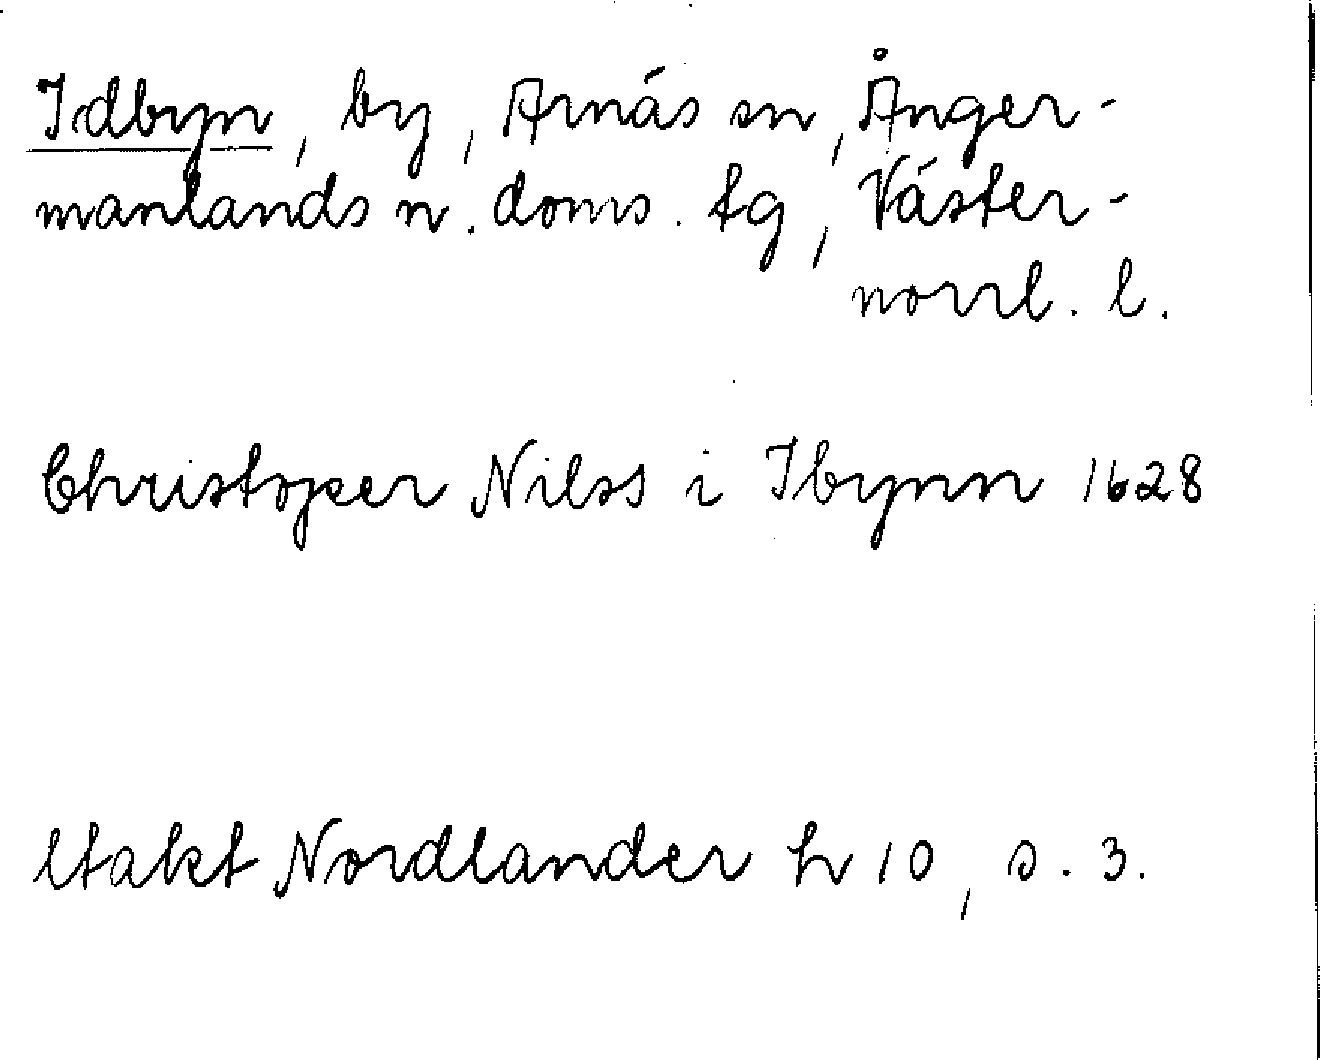 Idbyn, by, Arnäs sn, Ånger-
manlands n. doms. tg, Väster-
norrl. l.
Christoper Nilss i Ibynn 1628
Utakt Nordlander h 10, s. 3.